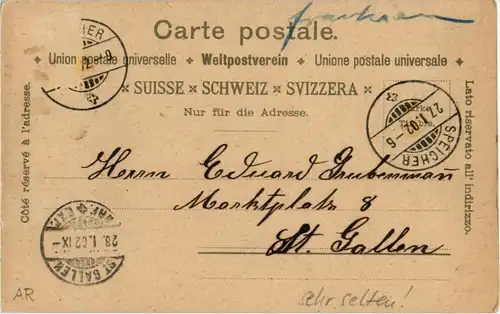 Carte postale.
Union postale universelle ✦ Weltpostverein ✦ Unione postale universale
SUISSE × SCHWEIZ × SVIZZERA
Nur für die Adresse.
Côté réservé à l'adresse.
Lato riservato all' indirizzo.
SPEICHER
27.I.02.-6
Herrn Eduard Grubenmann
Marktplatz 8
St. Gallen
ST. GALLEN
28.I.02.IX-
AR
sehr selten!